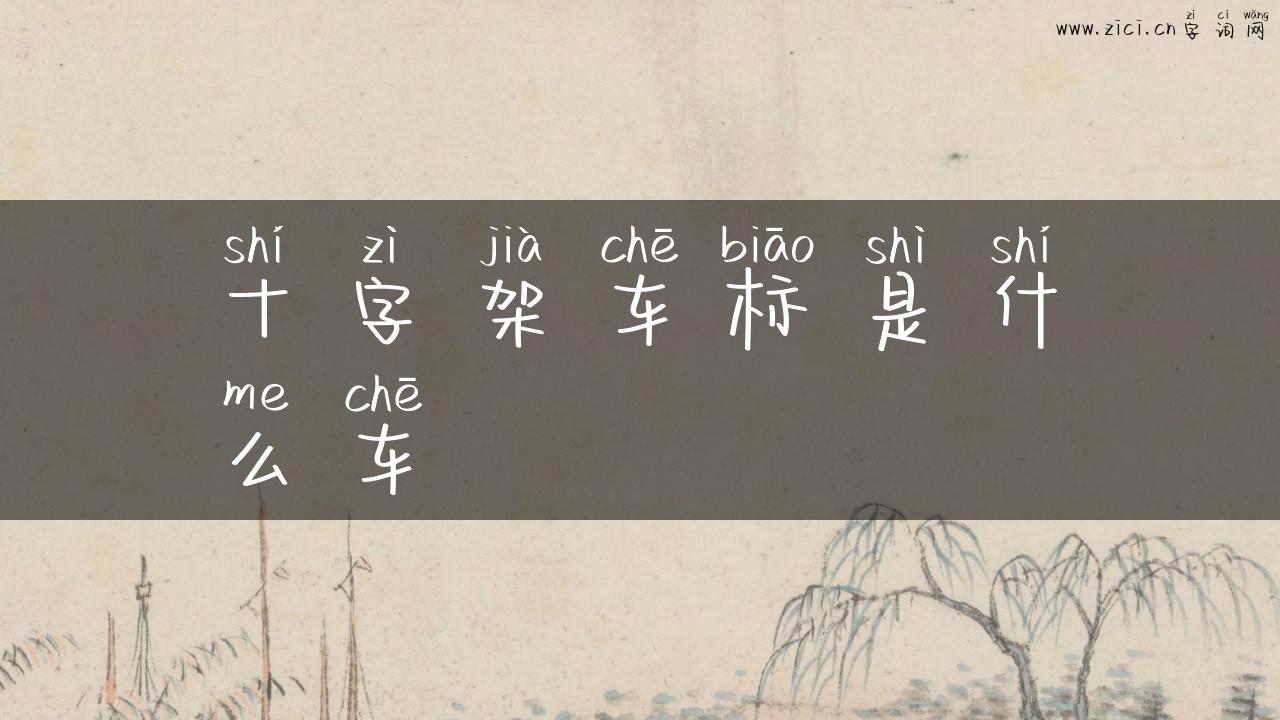 zì cí wǎng
www.zici.cn 字 词 网
shí zì jià chē biāo shì shí
十 字 架 车 标 是 什
me chē
么 车